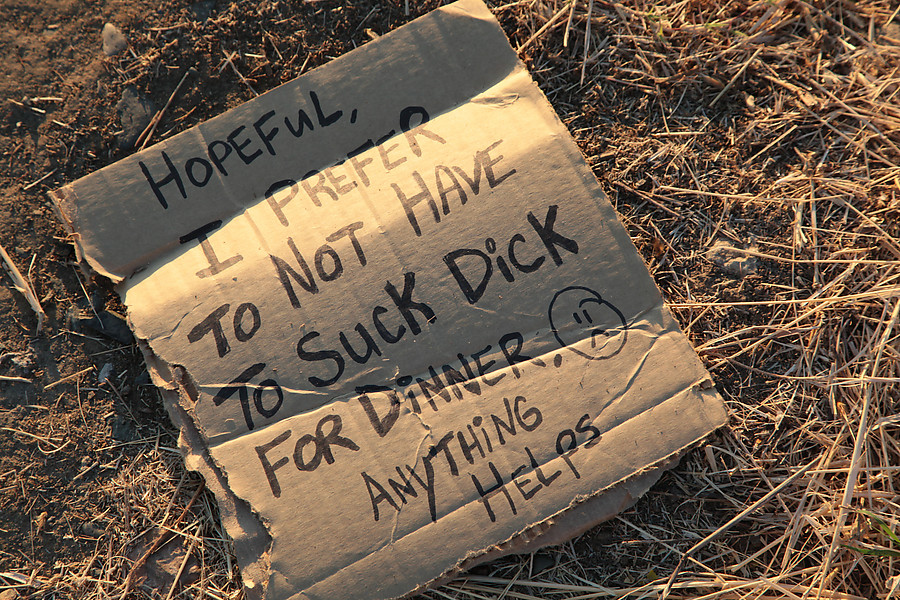 HOPEFUL,
I PREFER
TO NOT HAVE
TO SUCK DICK
FOR DINNER.
ANYTHING
HELPS